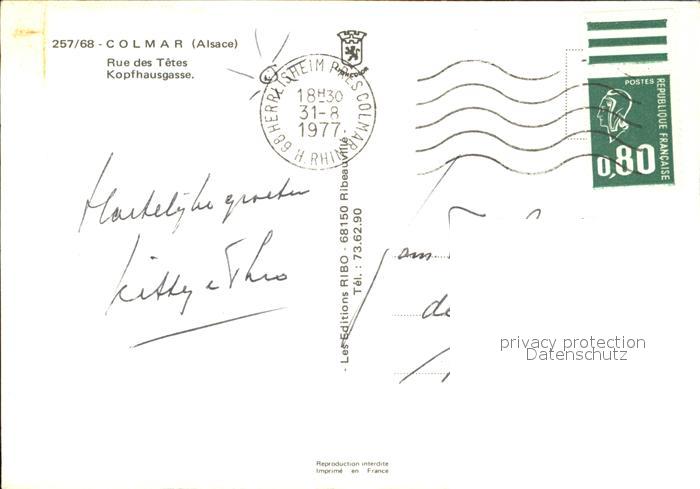 257/68 - COLMAR (Alsace)
Rue des Têtes
Kopfhausgasse.
68 HERRLISHEIM PRES COLMAR
18H30
31-8
1977
H. RHIN
POSTES
REPUBLIQUE FRANÇAISE
0,80
Hartelijke groeten
Kitty & Theo
- Les Editions RIBO - 68150 Ribeauvillé -
Tél. : 73.62.90
de
privacy protection
Datenschutz
Reproduction interdite
Imprimé en France